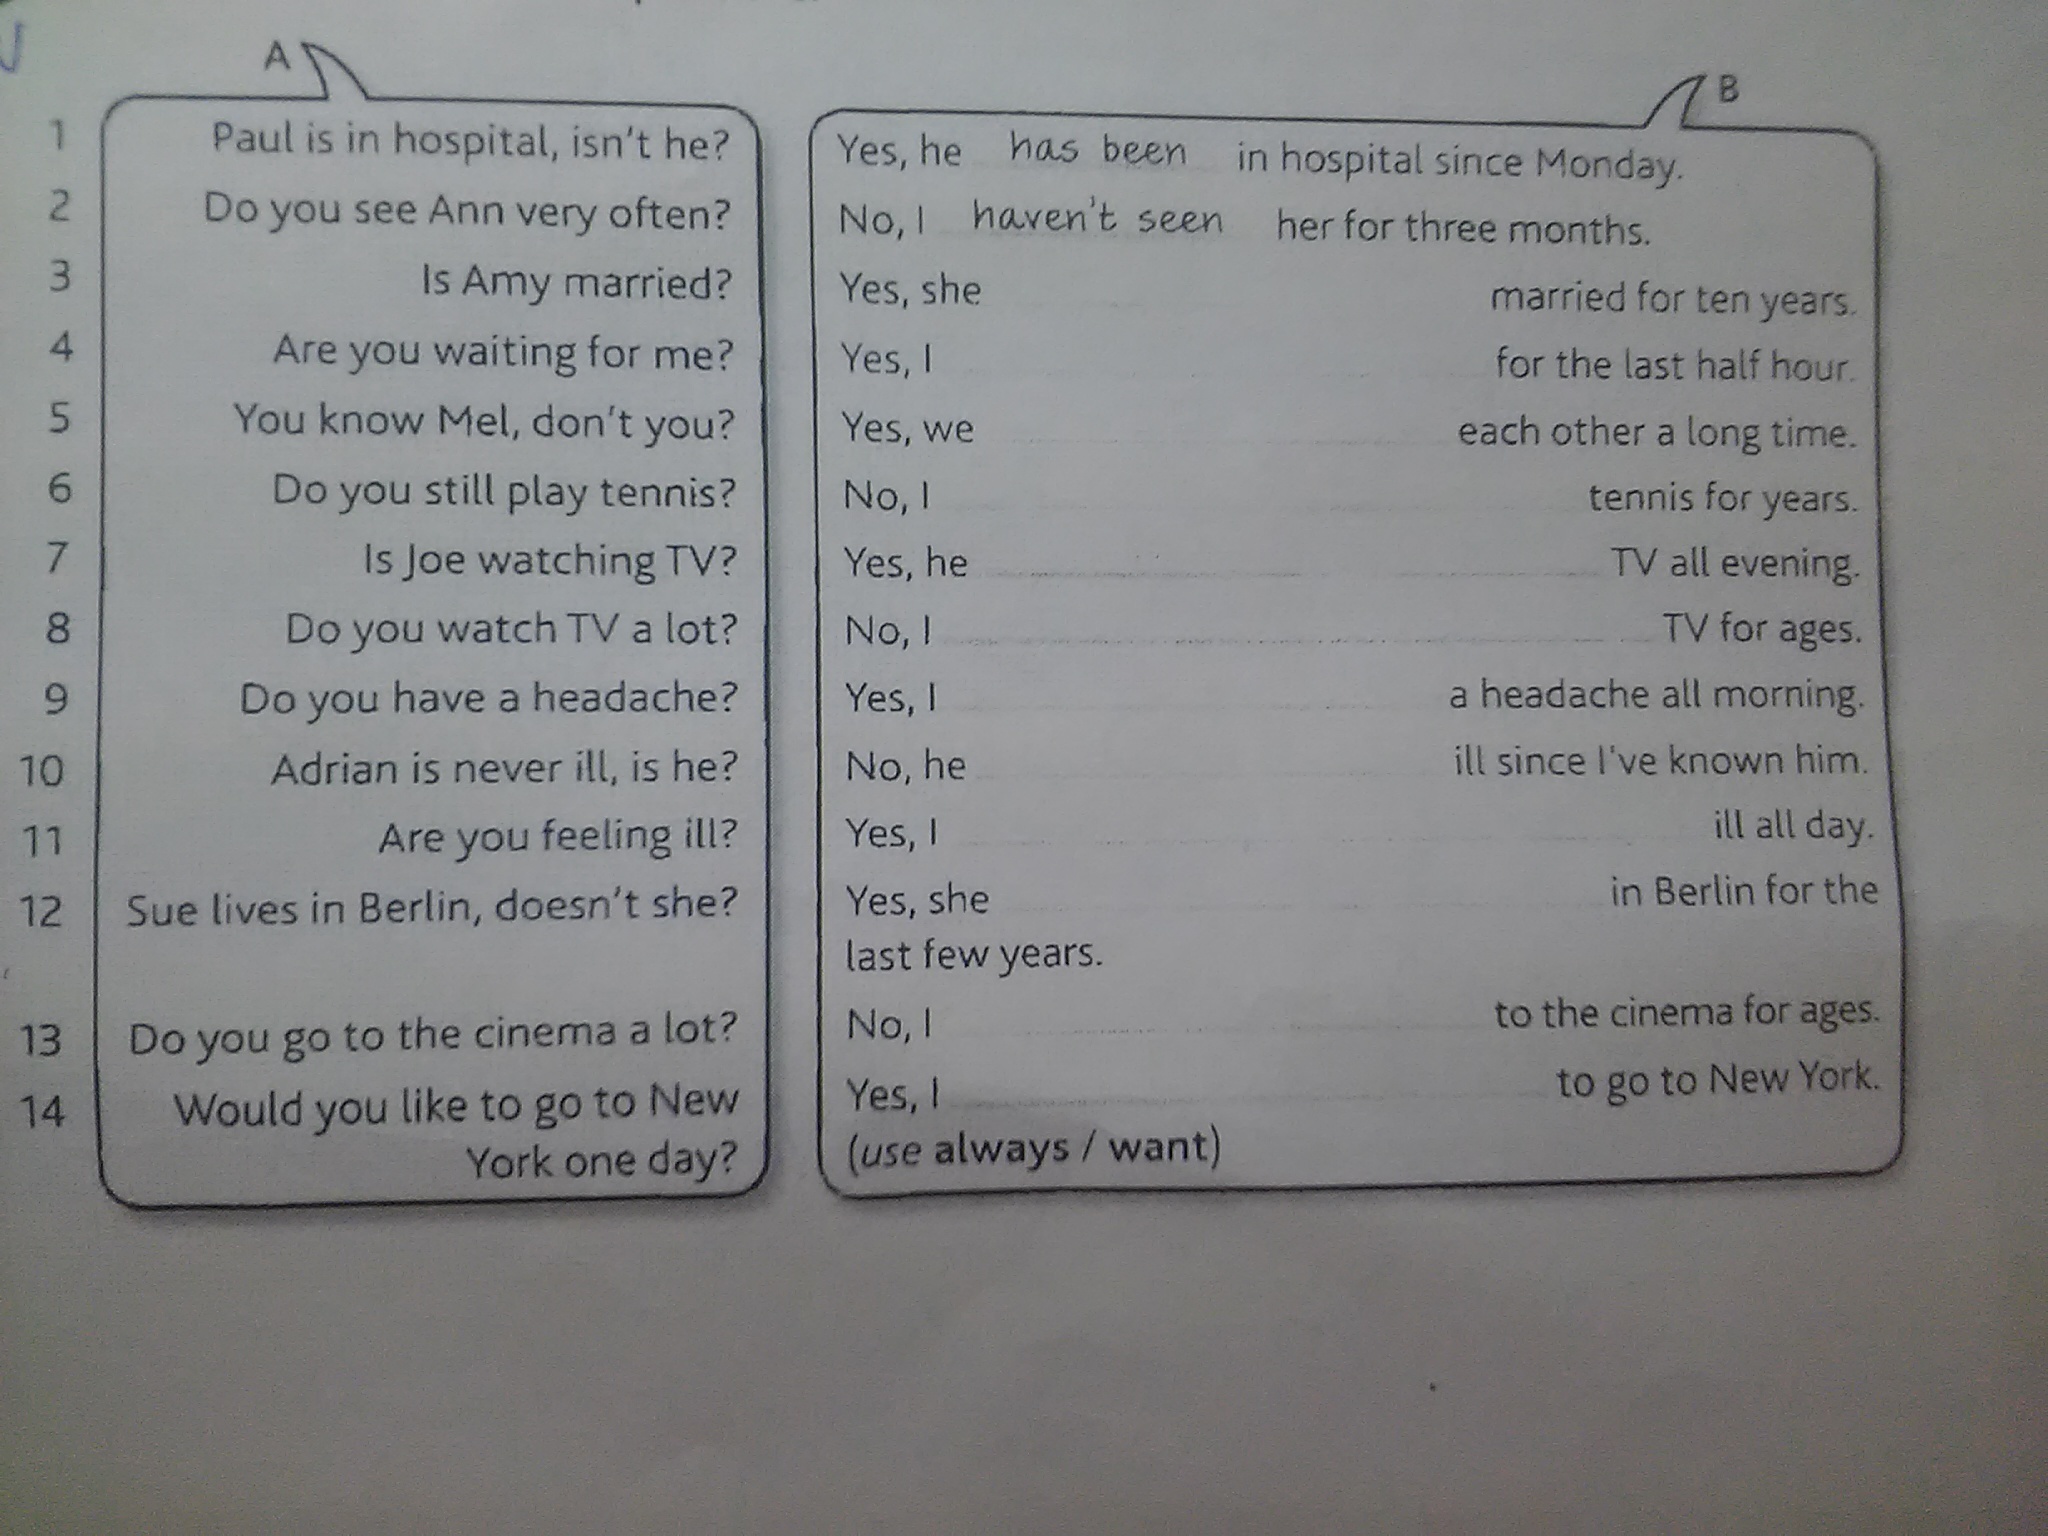 A
B
1 Paul is in hospital, isn't he? Yes, he has been in hospital since Monday.
2 Do you see Ann very often? No, I haven't seen her for three months.
3 Is Amy married? Yes, she married for ten years.
4 Are you waiting for me? Yes, I for the last half hour.
5 You know Mel, don't you? Yes, we each other a long time.
6 Do you still play tennis? No, I tennis for years.
7 Is Joe watching TV? Yes, he TV all evening.
8 Do you watch TV a lot? No, I TV for ages.
9 Do you have a headache? Yes, I a headache all morning.
10 Adrian is never ill, is he? No, he ill since I've known him.
11 Are you feeling ill? Yes, I ill all day.
12 Sue lives in Berlin, doesn't she? Yes, she in Berlin for the
last few years.
13 Do you go to the cinema a lot? No, I to the cinema for ages.
14 Would you like to go to New Yes, I to go to New York.
York one day? (use always / want)